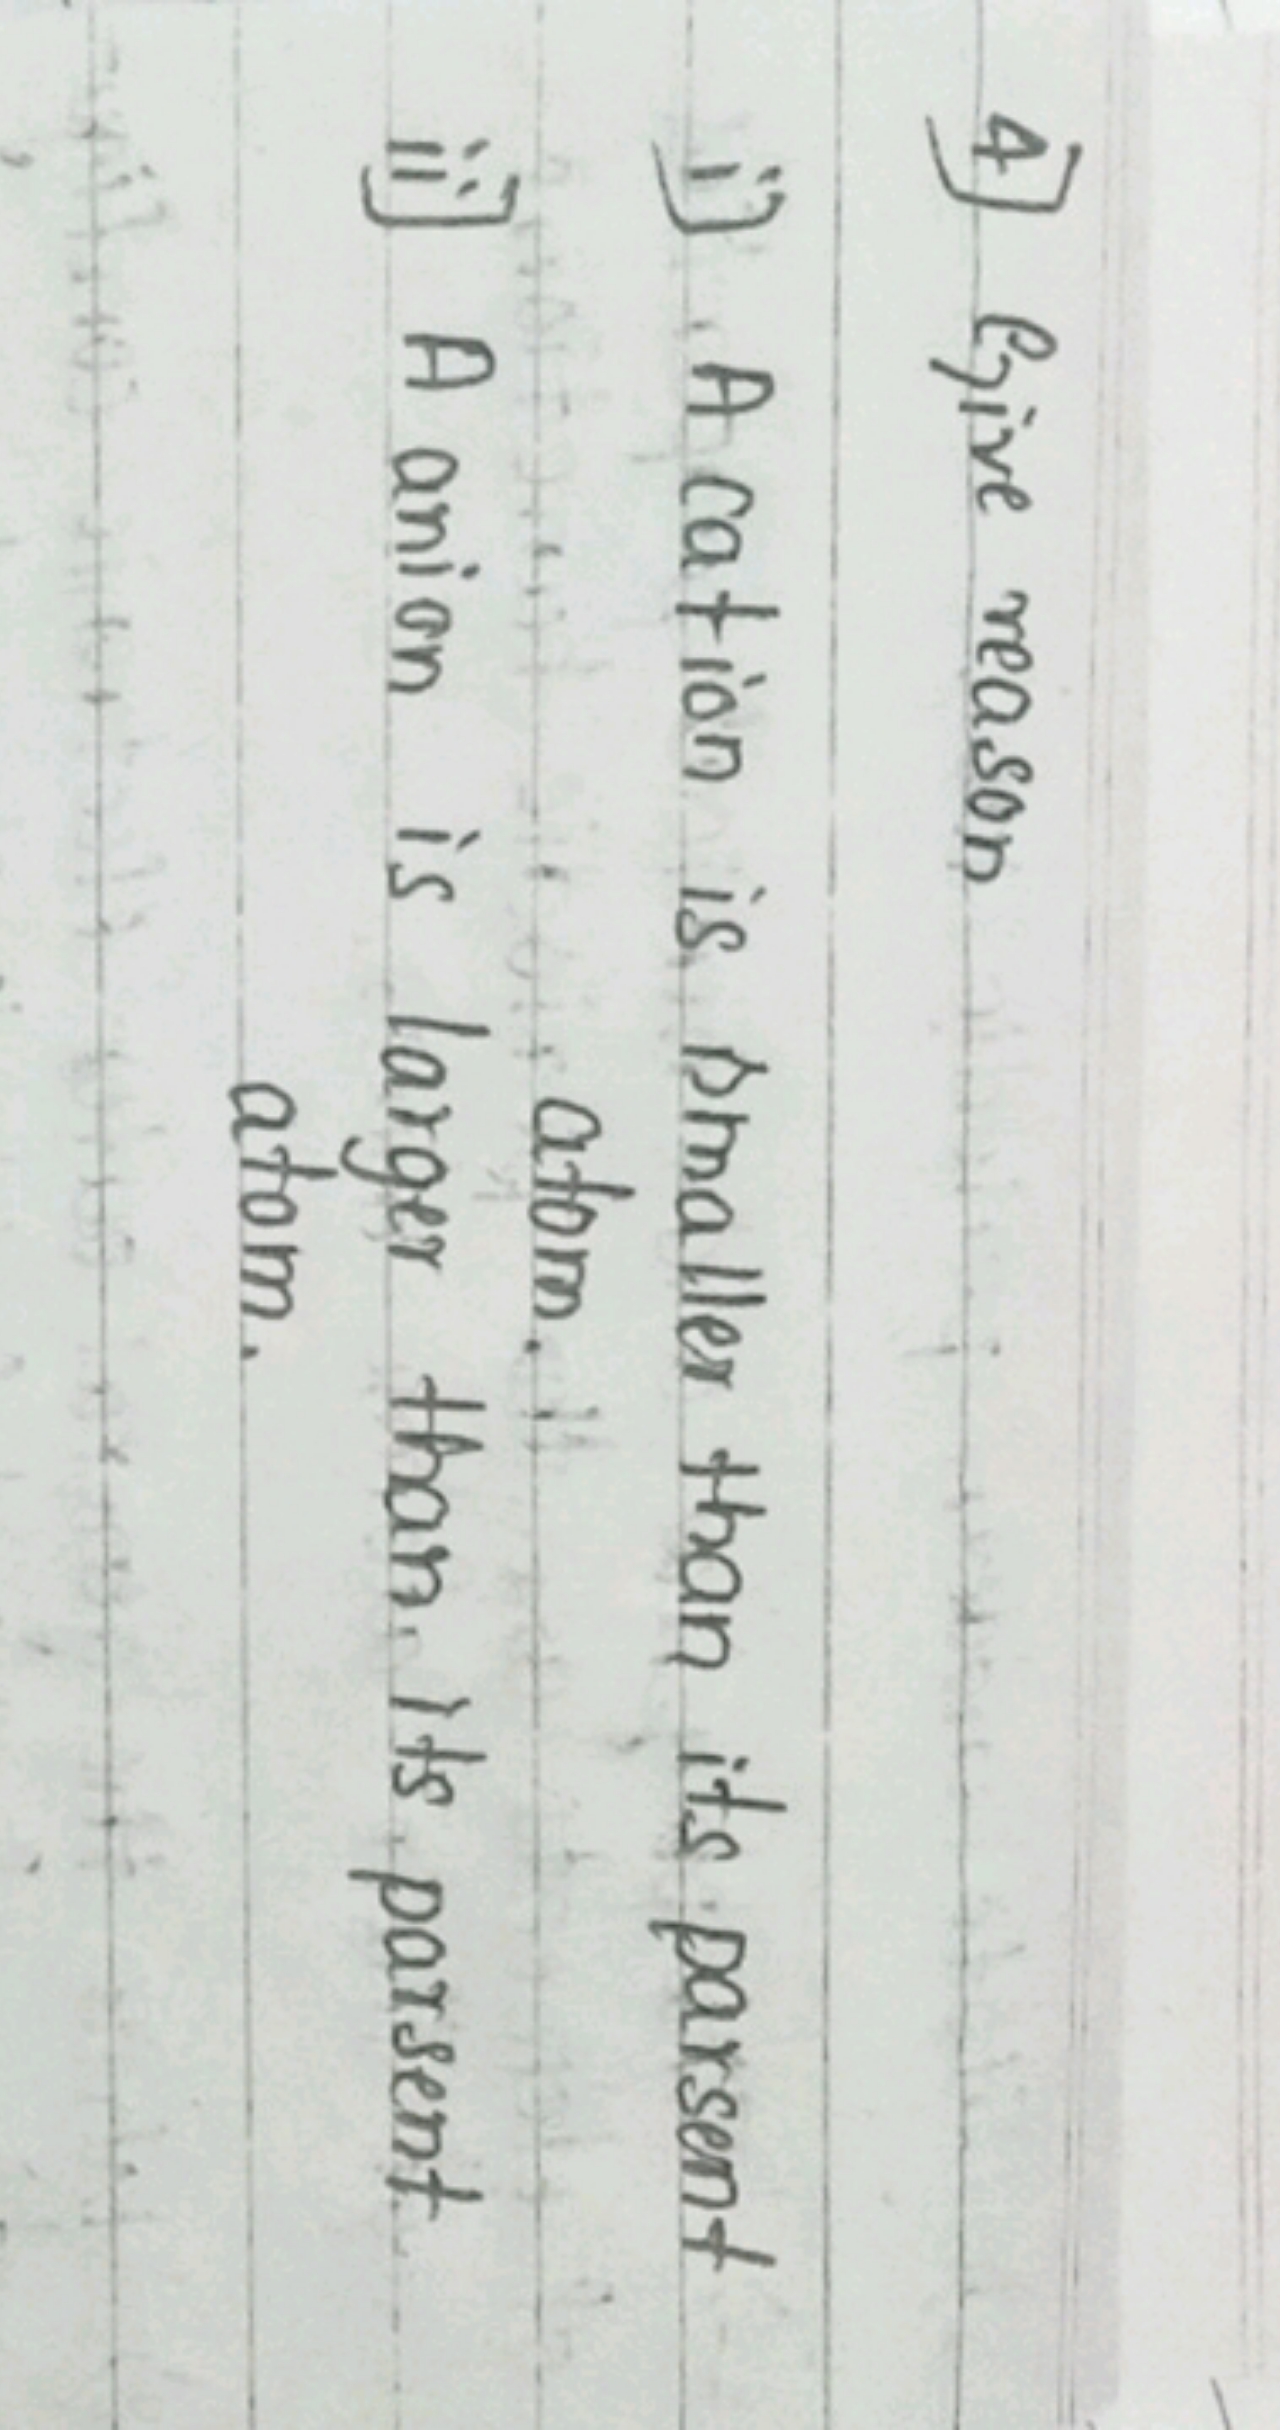 4] Give reason
i] A cation is smaller than its parsent
atom.
ii] A anion is larger than its parsent
atom.